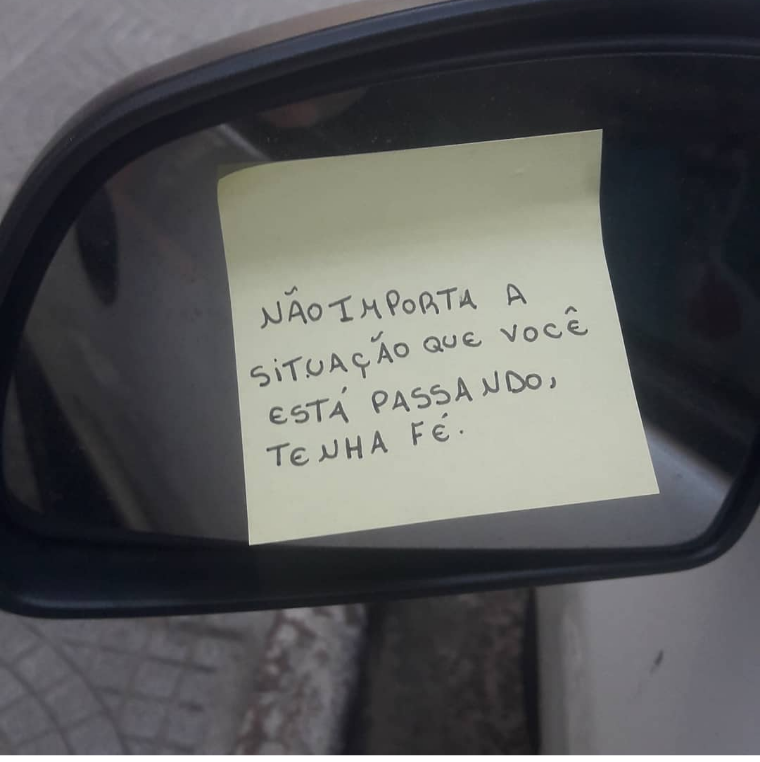 NÃO IMPORTA A
SITUAÇÃO QUE VOCÊ
ESTÁ PASSANDO,
TENHA FÉ.